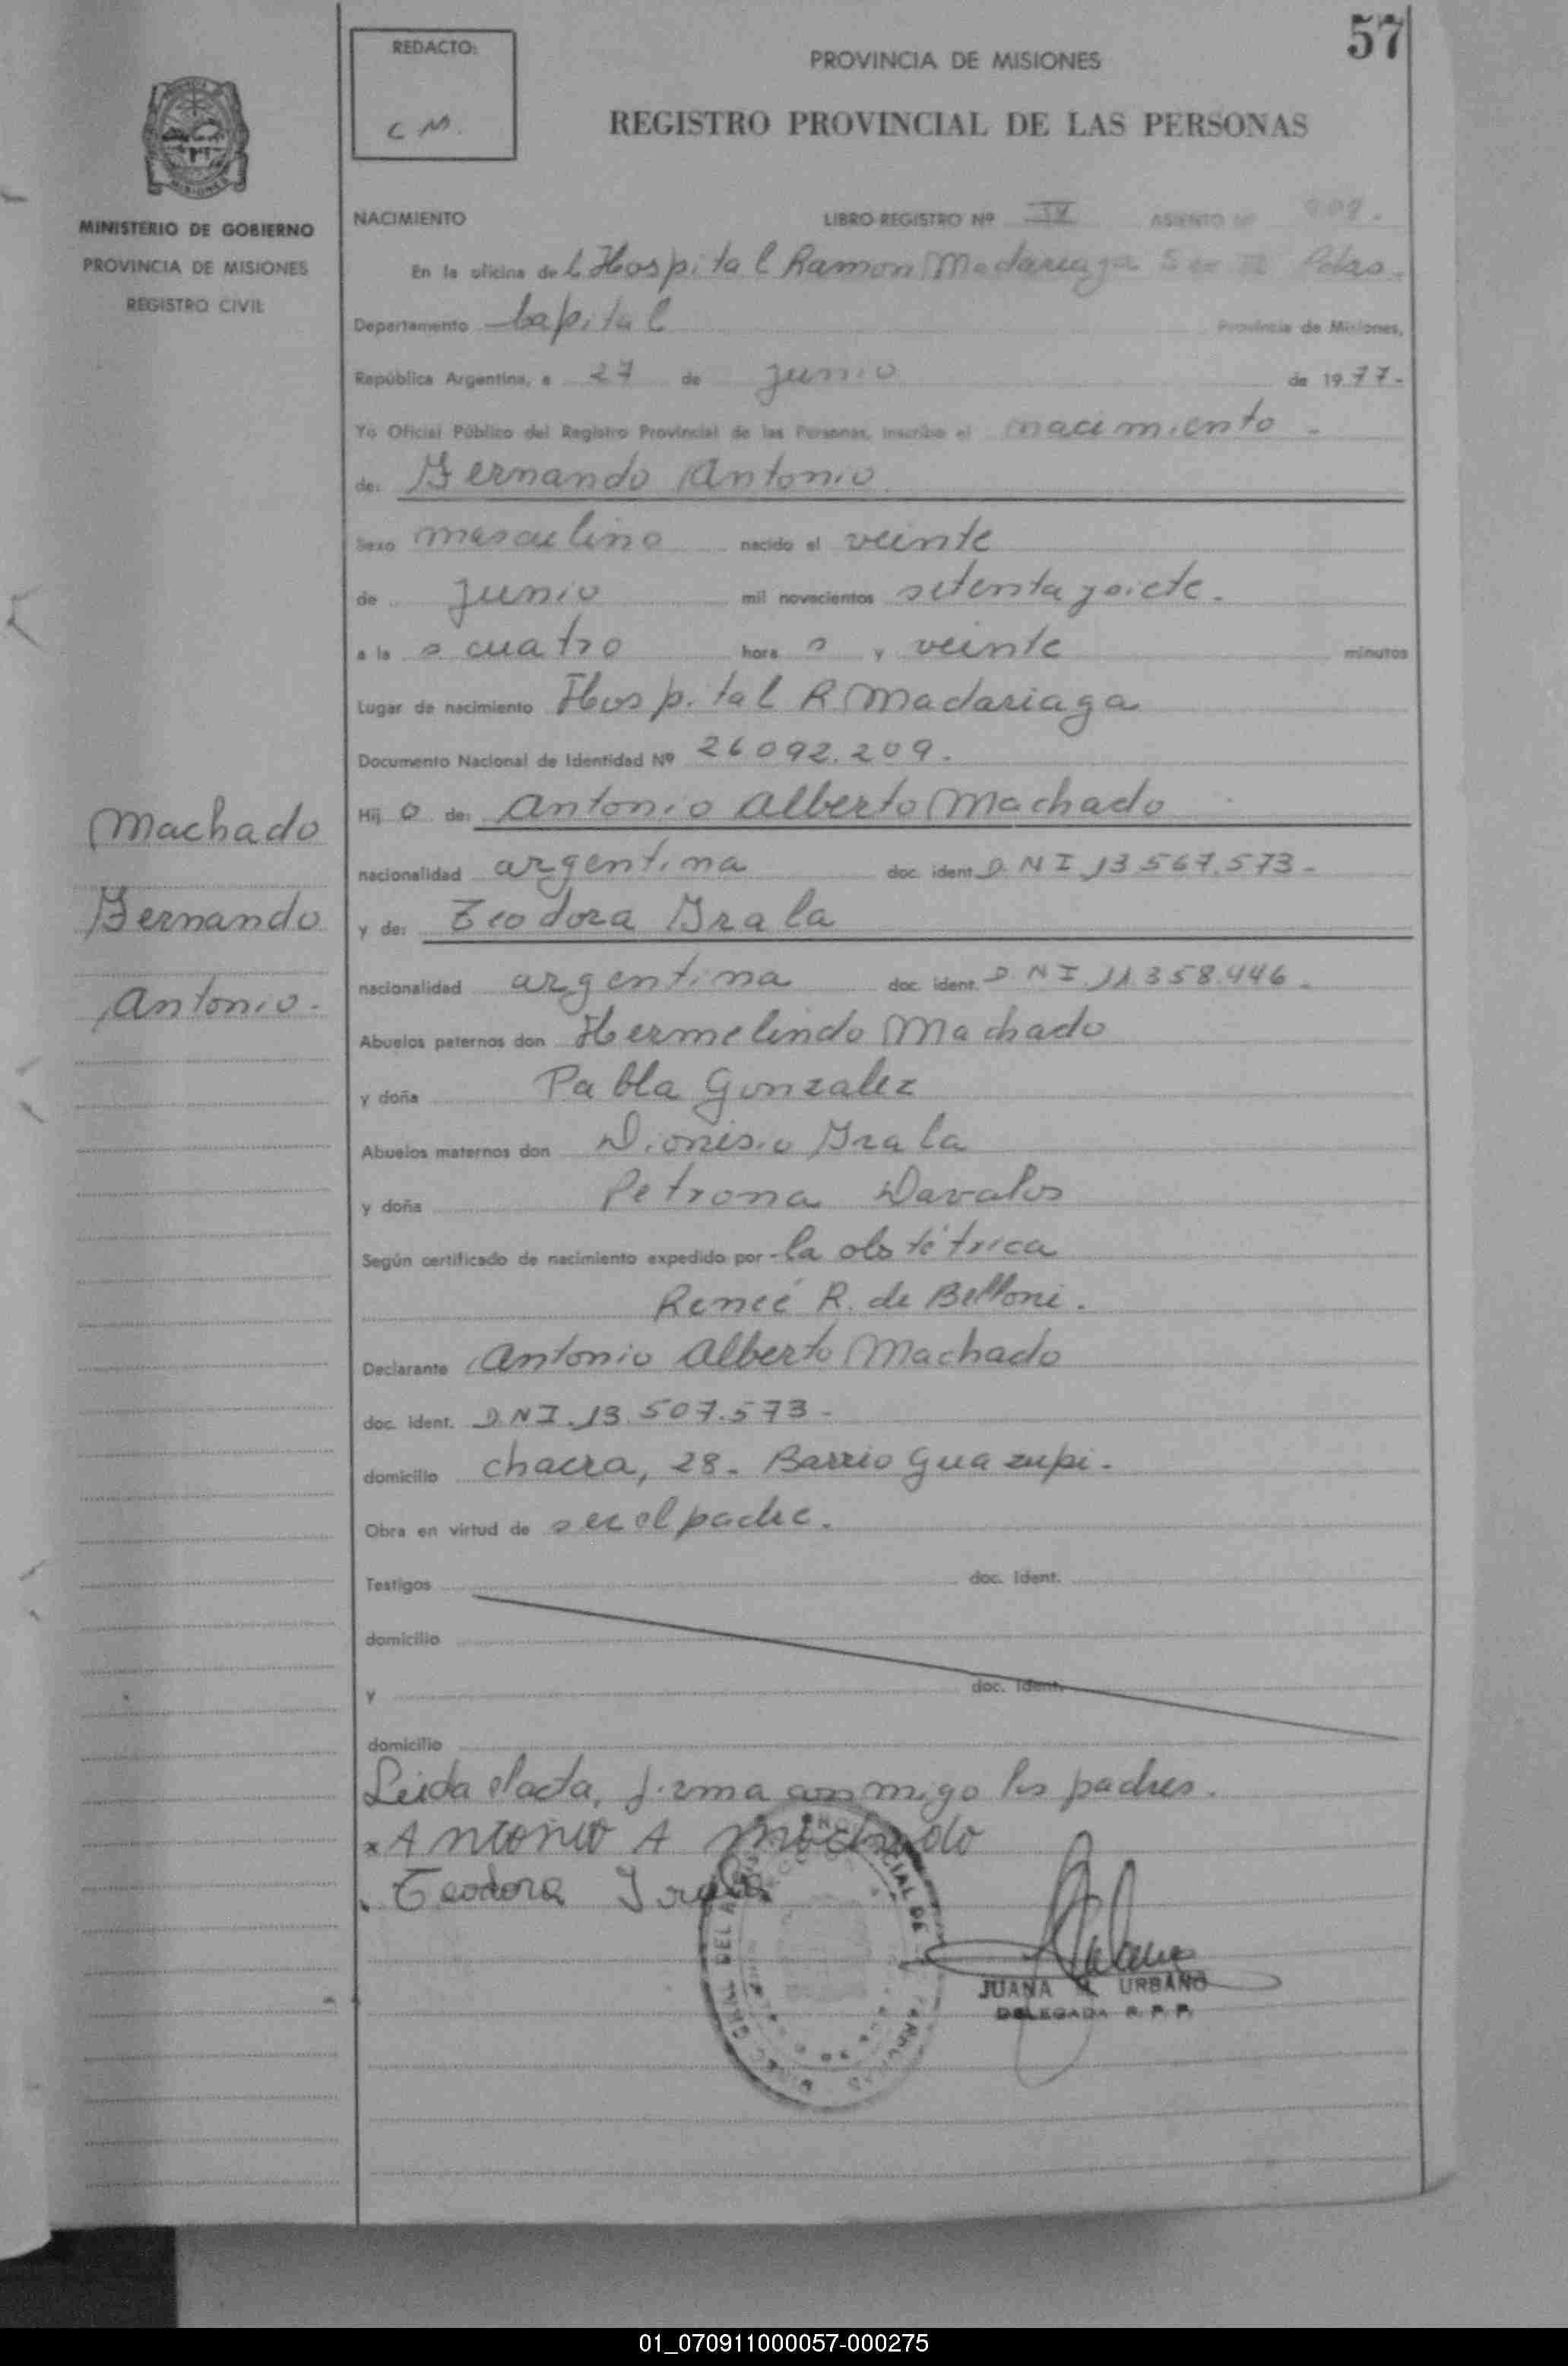 57
REDACTO:
C M.
PROVINCIA DE MISIONES
REGISTRO PROVINCIAL DE LAS PERSONAS
MINISTERIO DE GOBIERNO
PROVINCIA DE MISIONES
REGISTRO CIVIL
Machado
Fernando
Antonio.
NACIMIENTO LIBRO REGISTRO Nº IV ASIENTO Nº
En la oficina de l Hospital Ramon Madariaga
Departamento Capital Provincia de Misiones,
República Argentina, a 27 de junio de 1977-
Yo Oficial Público del Registro Provincial de las Personas, inscribo el nacimiento -
de: Fernando Antonio
Sexo masculino nacido el veinte
de junio mil novecientos setenta y siete.
a la s cuatro hora s y veinte minutos
Lugar de nacimiento Hospital R Madariaga
Documento Nacional de Identidad Nº 26092.209.
Hij o de: Antonio Alberto Machado
nacionalidad argentina doc ident D N I 13 567.573-
y de: Teodora Irala
nacionalidad argentina doc ident. D N I. 11.358.446.
Abuelos paternos don Hermelindo Machado
y doña Pabla Gonzalez
Abuelos maternos don Dionisio Irala
y doña Petrona Davalos
Según certificado de nacimiento expedido por la obstétrica
Reneé R. de Belloni.
Declarante Antonio Alberto Machado
doc. ident. D.N I. 13.507.573-
domicilio chacra, 28. Barrio Guazupi.
Obra en virtud de ser el padre.
Testigos doc. ident.
domicilio
y doc. ident.
domicilio
Leida el acta, firma conmigo los padres.
x Antonio A Machado
Teodora Irala
JUANA URBANO
DELEGADA R. P. P.
01_070911000057-000275